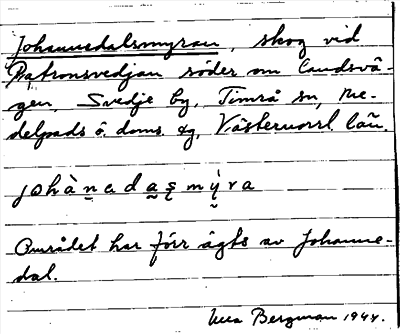 Johannedalsmyran, skog vid
Patronsvedjan söder om landsvä-
gen, Svedje by, Timrå sn, Me-
delpads ö. doms. dg, Västernorrl. län.
johànadasmýra
Området har förr ägts av Johanne-
dal.
Bergman 1944.